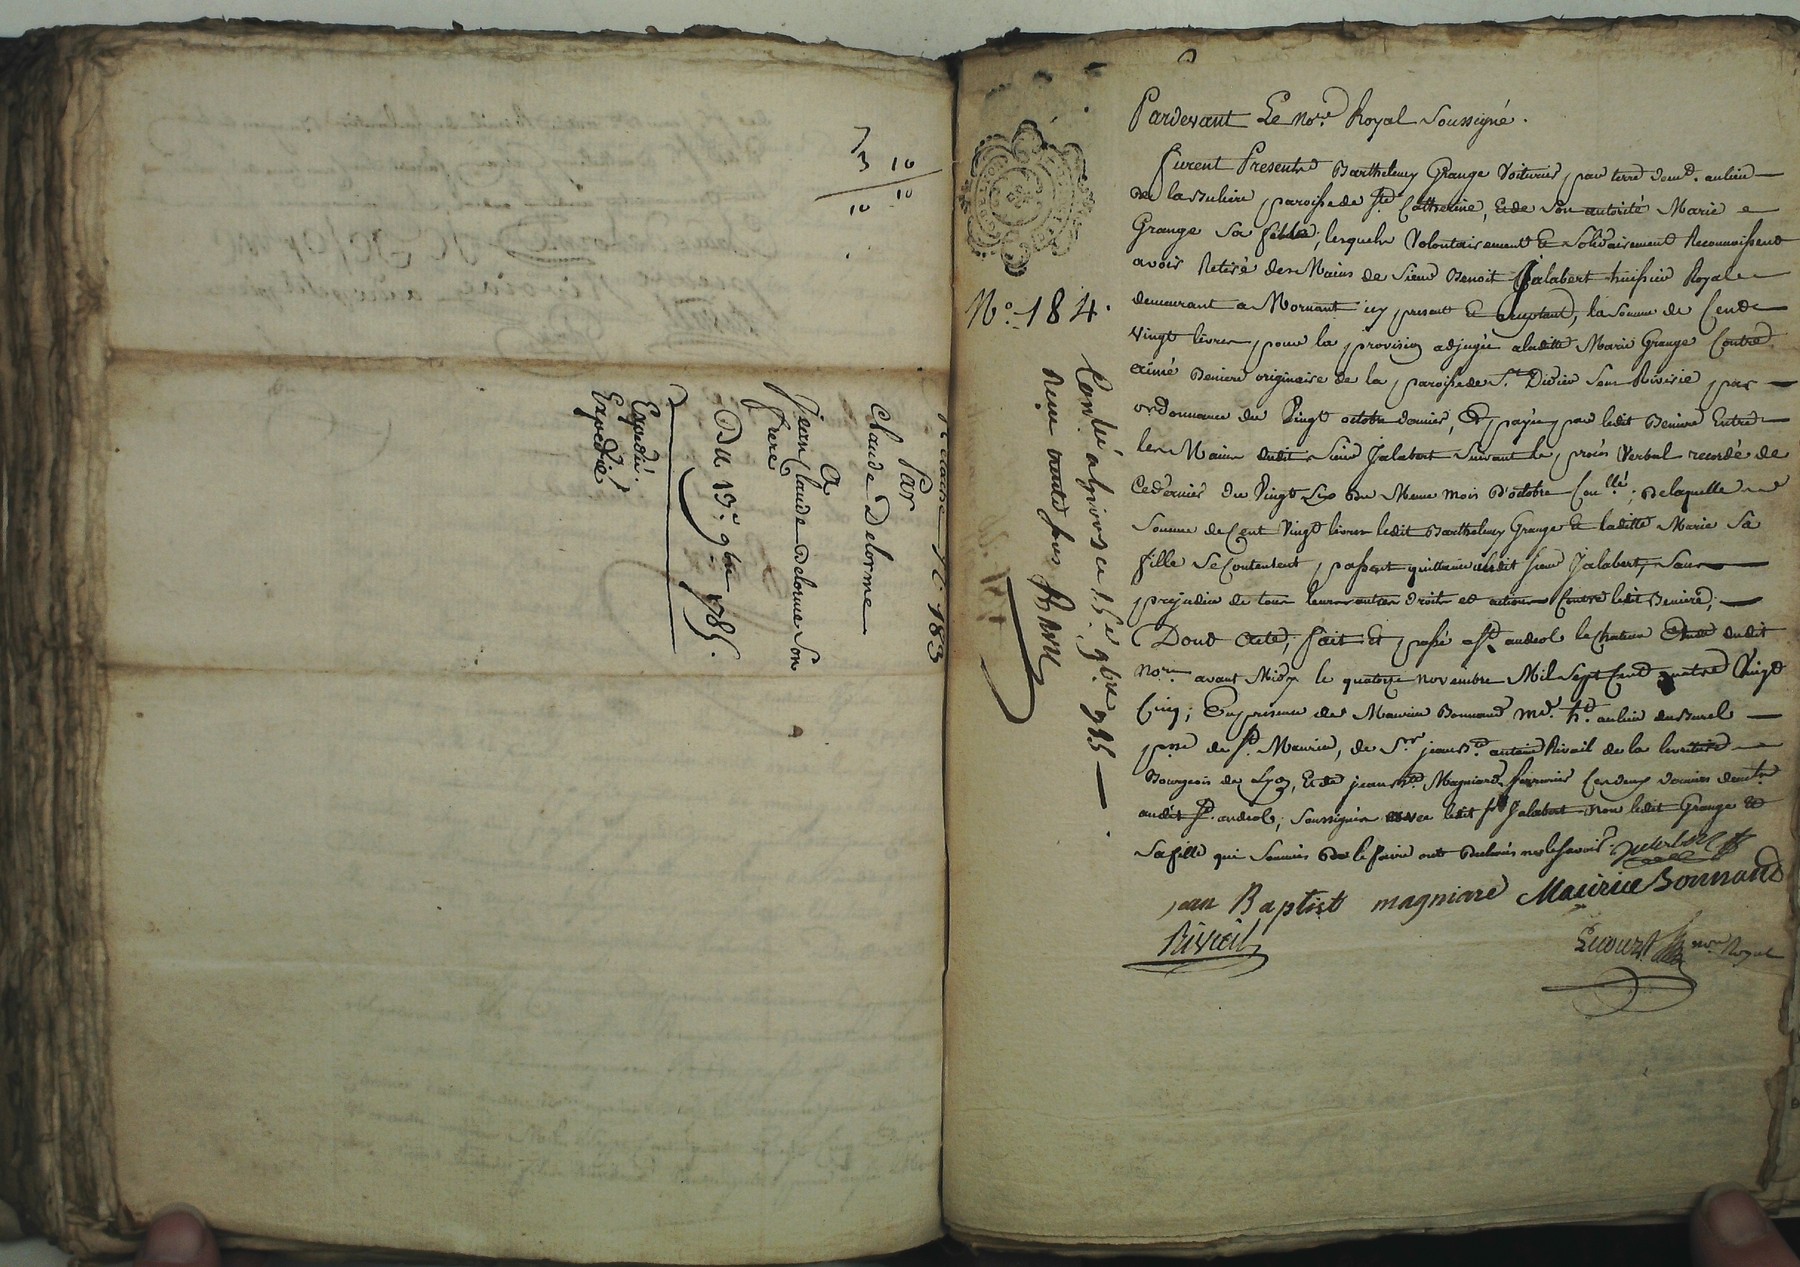 7
3 10
10 10
N.° 183
Par
Claude Delorme
a
Jean Claude Delorme Son
frere
Du 13.e 9bre 1785.
Expedié.
Expedié
N.° 184.
Controlé a Givors ce 15.e 9bre 785
Reçu trente sous
Pardevant Le no.re Royal Soussigné.
furent Presents Barthelemy Grange Voiturier par terre dem.t au lieu
de la paroisse de S.te Catherine, et de Son autorité Marie
Grange Sa fille, lesquels Volontairement et Solidairement Reconnoissent
avoir Retiré des Mains de Sieur Benoit Jalabert huissier Royal
demeurant a Mornant icy present et acceptant, la Somme de Cent
vingt livres pour la provision adjugée a laditte Marie Grange Contre
Beniere originaire de la paroisse de S.t Didier Sous Riverie par
ordonnance du Vingt octobre dernier, et payée par ledit Beniere Entre
les Mains dudit Sieur Jalabert Suivant le procès Verbal recordé de
ce dernier du Vingt Six du Meme mois D'octobre Con.llé; De laquelle
Somme de Cent Vingt livres ledit Barthelemy Grange et laditte Marie Sa
fille Se Contentent, passent quittance audit Sieur Jalabert, Sans
prejudice de tous leurs autres droits et actions Contre ledit Beniere;
Dont acte, fait et passé a S.t andeol le chateau Etude dudit
no.re avant Midy le quatorze novembre Mil Sept Cent quatre Vingt
Cinq; En presence de Maurice Bonnand M.d h.t au lieu du Burel
p.sse de S.t Maurice, de S.r jean B.te antoine Rivoil de la
Bourgeois de Lyon, et de jean B.te Magniard Serrurier Ces deux derniers dem.ts
audit S.t andeol, Soussignés avec ledit S.r Jalabert non ledit Grange et
Sa fille qui Sommés De le faire ont Declarés ne le Savoir.
jean Baptist magniard Maurice Bonnand
Rivoil
no.re Royal